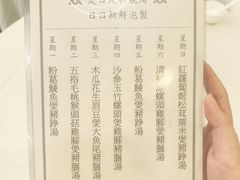 是日足料靚湯
日日新鮮泡製
星期一
粉葛鯪魚煲豬踭湯
星期二
五指毛桃猴頭菇雞腳煲豬腱湯
星期三
木瓜花生眉豆煲大魚尾豬腱湯
星期四
沙參玉竹螺頭煲雞腳豬腱湯
星期五
粉葛鯪魚煲豬踭湯
星期六
清補涼螺頭煲雞腳豬腱湯
星期日
紅蘿蔔姬松茸粟米煲豬踭湯